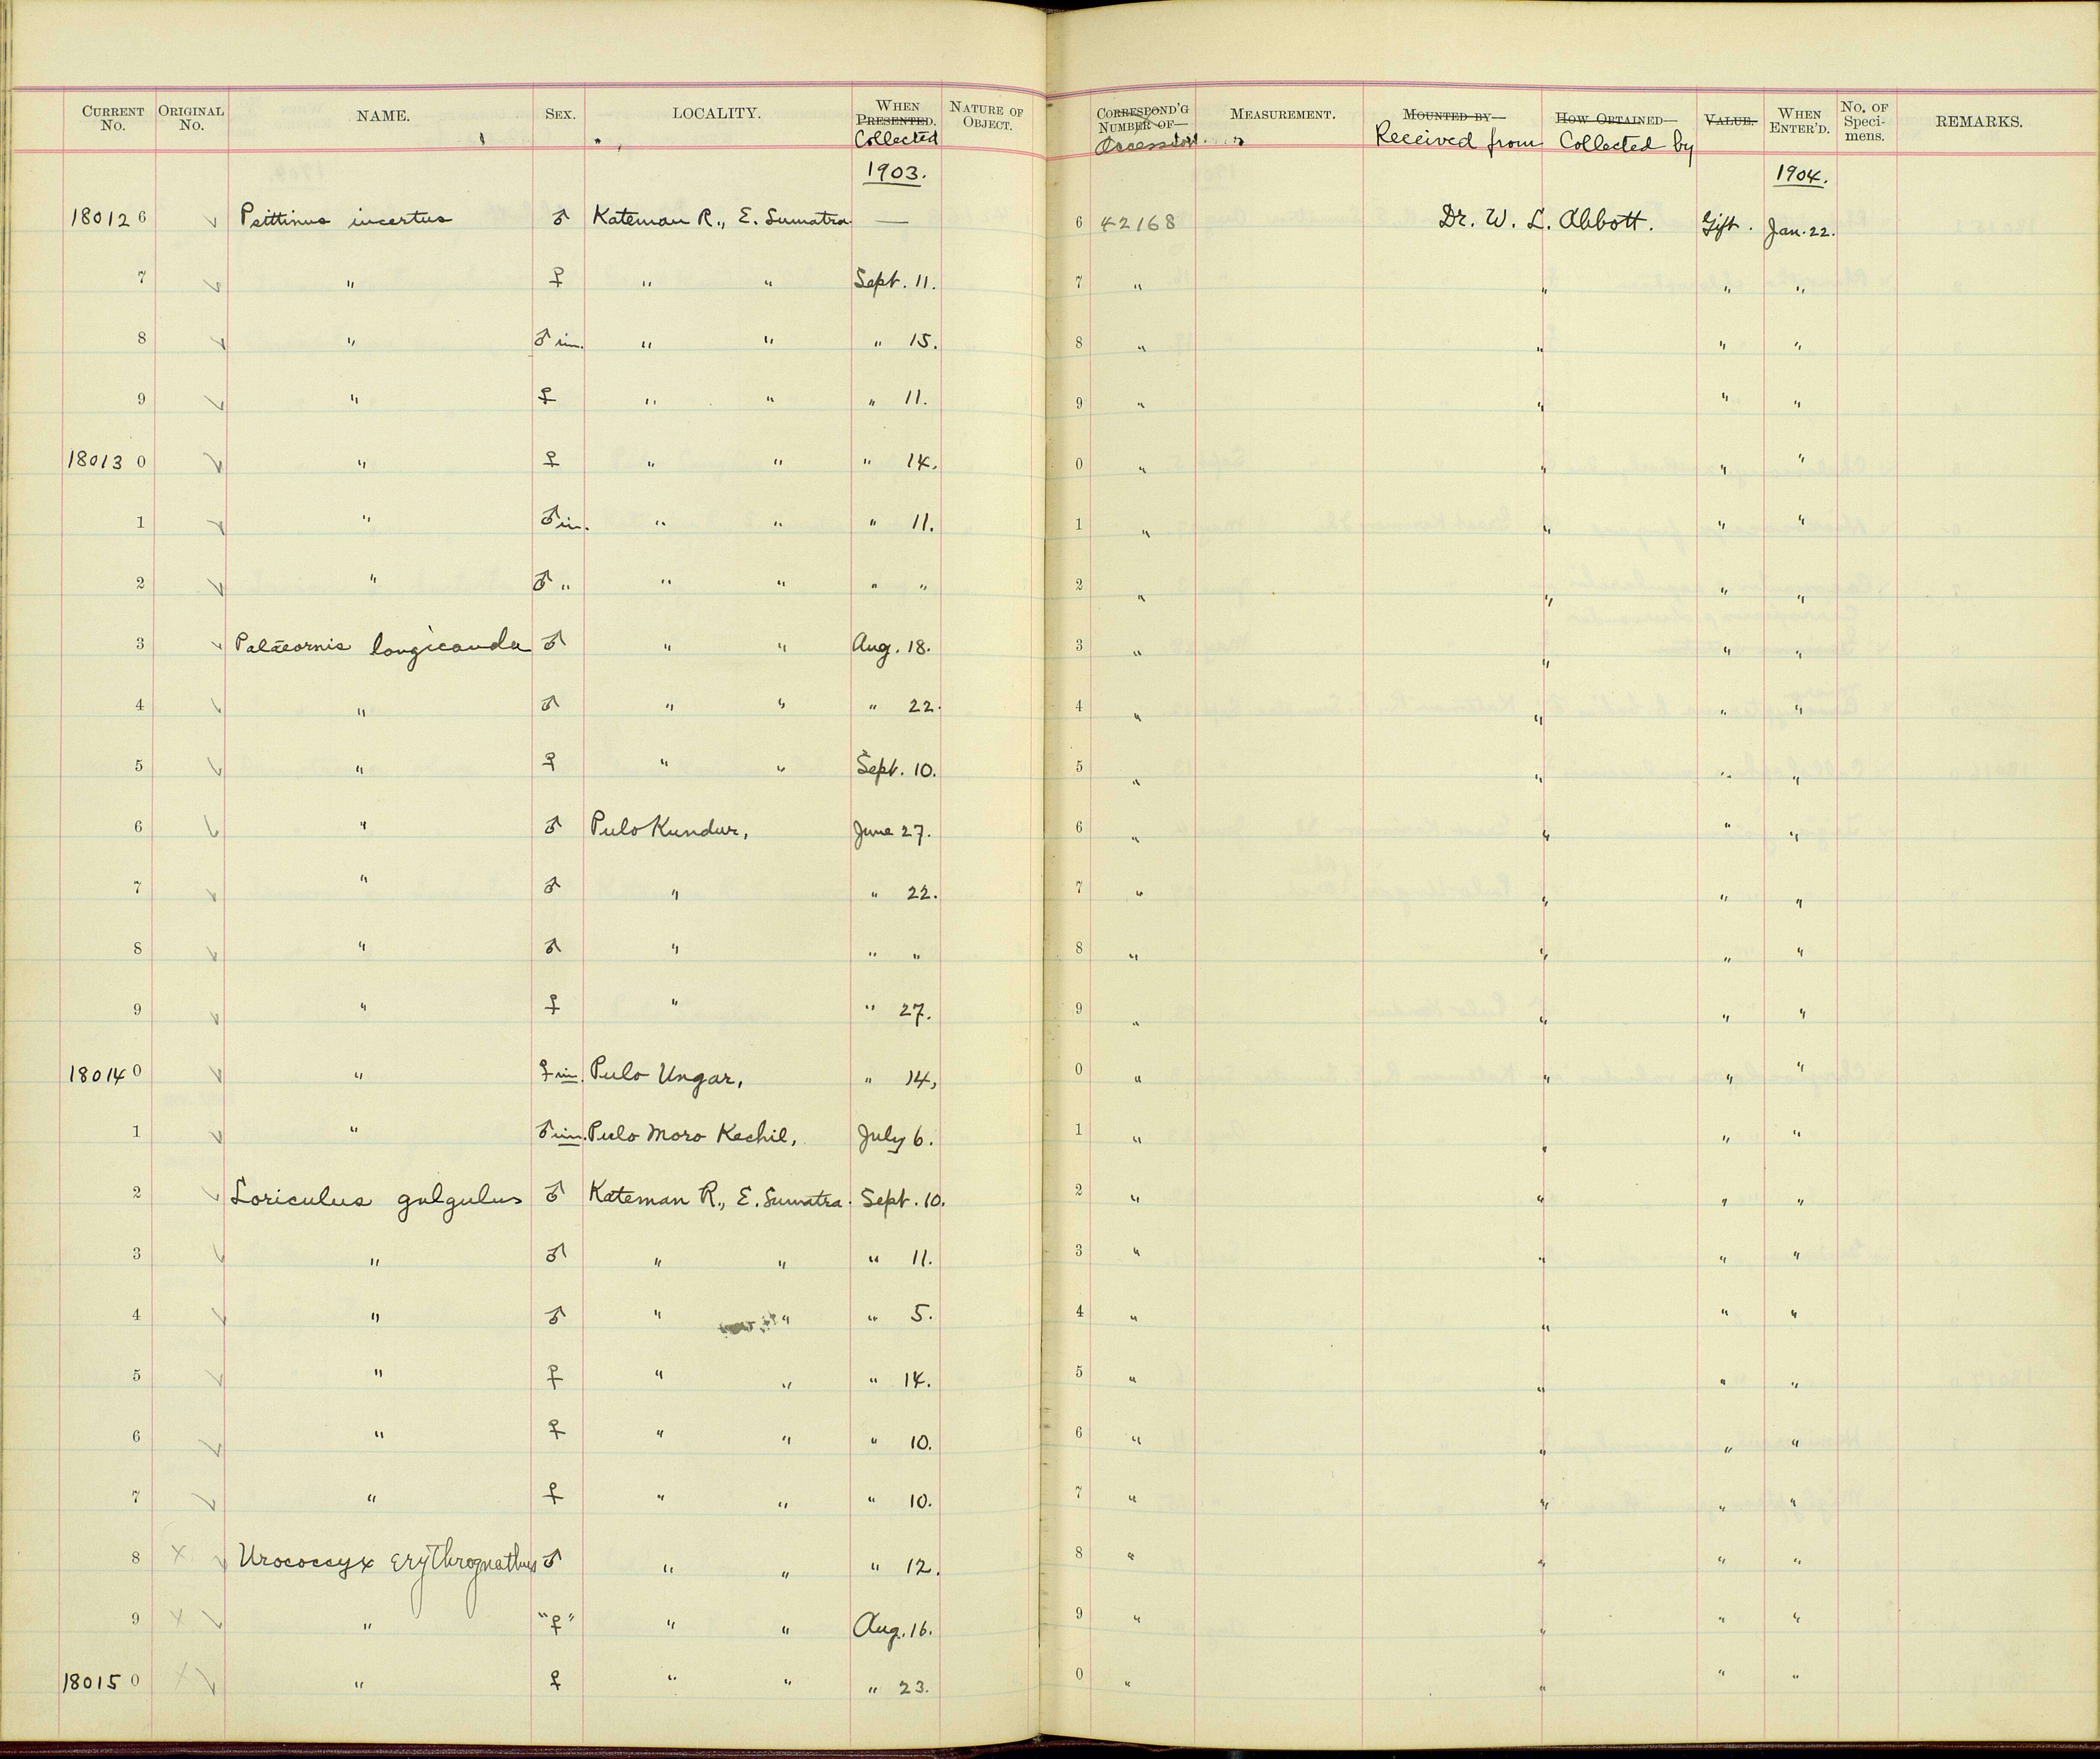 CURRENT No. ORIGINAL No. NAME. SEX. LOCALITY. WHEN PRESENTED. Collected NATURE OF OBJECT. CORRESPOND'G NUMBER OF Accession MEASUREMENT. MOUNTED BY Received from HOW OBTAINED Collected by VALUE. WHEN ENTER'D. No. OF Speci-mens. REMARKS.
1903. 1904.
18012 6 Psittinus incertus ♂ Kateman R., E. Sumatra — 6 42168 Dr. W. L. Abbott. Gift. Jan. 22.
7 " ♀ " " Sept. 11. 7 " " " "
8 " ♂ im. " " " 15. 8 " " " "
9 " ♀ " " " 11. 9 " " " "
18013 0 " ♀ " " " 14. 0 " " " "
1 " ♂ im. " " " 11. 1 " " " "
2 " ♂ " " " " " 2 " " " "
3 Palæornis longicauda ♂ " " Aug. 18. 3 " " " "
4 " ♂ " " " 22. 4 " " " "
5 " ♀ " " Sept. 10. 5 " " " "
6 " ♂ Pulo Kundur, June 27. 6 " " " "
7 " ♂ " " 22. 7 " " " "
8 " ♂ " " " 8 " " " "
9 " ♀ " " 27. 9 " " " "
18014 0 " ♀ im. Pulo Ungar, " 14, 0 " " " "
1 " ♂ im. Pulo Moro Kechil, July 6. 1 " " " "
2 Loriculus galgulus ♂ Kateman R., E. Sumatra. Sept. 10. 2 " " " "
3 " ♂ " " " 11. 3 " " " "
4 " ♂ " " " 5. 4 " " " "
5 " ♀ " " " 14. 5 " " " "
6 " ♀ " " " 10. 6 " " " "
7 " ♀ " " " 10. 7 " " " "
8 x Urococcyx erythrognathus ♂ " " " 12. 8 " " " "
9 x " "♀" " " Aug. 16. 9 " " " "
18015 0 x " ♀ " " " 23. 0 " " " "